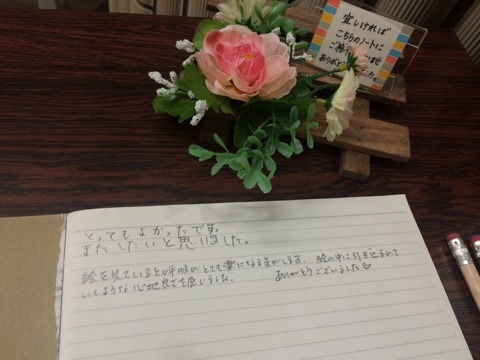 宜しければ
こちらのノートに
ご
ありがとう
とってもよかったです。
また したいと思いました。
絵を見ていると呼吸がとても楽になる気がします。絵の中に引き込まれて
いくような心地良さも感じました。 ありがとうございました♡